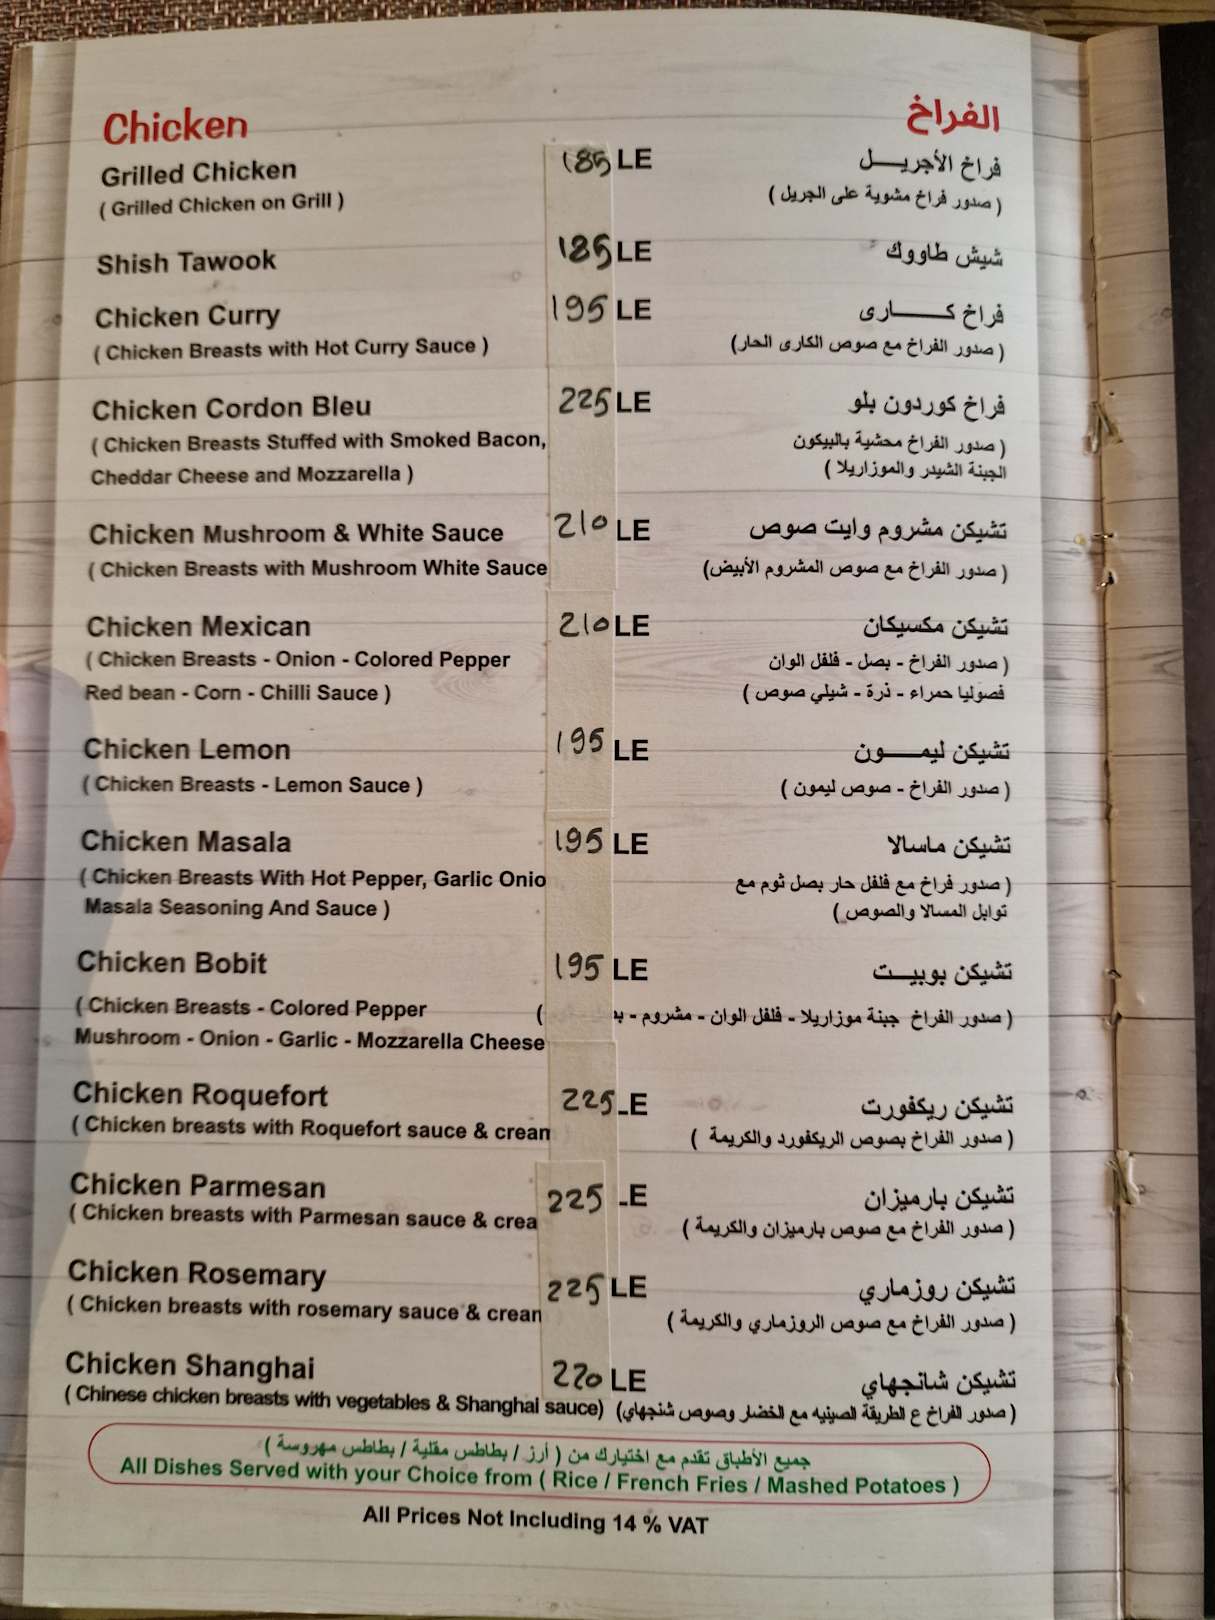 Chicken الفراخ
Grilled Chicken 185 LE فراخ الأجريـــل
( Grilled Chicken on Grill ) ( صدور فراخ مشوية على الجريل )
Shish Tawook 185 LE شيش طاووك
Chicken Curry 195 LE فراخ كــــــارى
( Chicken Breasts with Hot Curry Sauce ) ( صدور الفراخ مع صوص الكارى الحار)
Chicken Cordon Bleu 225 LE فراخ كوردون بلو
( Chicken Breasts Stuffed with Smoked Bacon, ( صدور الفراخ محشية بالبيكون
Cheddar Cheese and Mozzarella ) الجبنة الشيدر والموزاريلا )
Chicken Mushroom & White Sauce 210 LE تشيكن مشروم وايت صوص
( Chicken Breasts with Mushroom White Sauce ( صدور الفراخ مع صوص المشروم الأبيض)
Chicken Mexican 210 LE تشيكن مكسيكان
( Chicken Breasts - Onion - Colored Pepper ( صدور الفراخ - بصل - فلفل الوان
Red bean - Corn - Chilli Sauce ) فصوليا حمراء - ذرة - شيلي صوص )
Chicken Lemon 195 LE تشيكن ليمـــــون
( Chicken Breasts - Lemon Sauce ) ( صدور الفراخ - صوص ليمون )
Chicken Masala 195 LE تشيكن ماسالا
( Chicken Breasts With Hot Pepper, Garlic Onio ( صدور فراخ مع فلفل حار بصل ثوم مع
Masala Seasoning And Sauce ) توابل المسالا والصوص )
Chicken Bobit 195 LE تشيكن بوبيـــت
( Chicken Breasts - Colored Pepper ( صدور الفراخ جبنة موزاريلا - فلفل الوان - مشروم - )
Mushroom - Onion - Garlic - Mozzarella Cheese
Chicken Roquefort 225 LE تشيكن ريكفورت
( Chicken breasts with Roquefort sauce & cream ( صدور الفراخ بصوص الريكفورد والكريمة )
Chicken Parmesan 225 LE تشيكن بارميزان
( Chicken breasts with Parmesan sauce & crea ( صدور الفراخ مع صوص بارميزان والكريمة )
Chicken Rosemary 225 LE تشيكن روزماري
( Chicken breasts with rosemary sauce & cream ( صدور الفراخ مع صوص الروزماري والكريمة )
Chicken Shanghai 220 LE تشيكن شانجهاي
( Chinese chicken breasts with vegetables & Shanghai sauce) ( صدور الفراخ ع الطريقة الصينيه مع الخضار وصوص شنجهاي)
جميع الأطباق تقدم مع اختيارك من ( أرز / بطاطس مقلية / بطاطس مهروسة )
All Dishes Served with your Choice from ( Rice / French Fries / Mashed Potatoes )
All Prices Not Including 14 % VAT